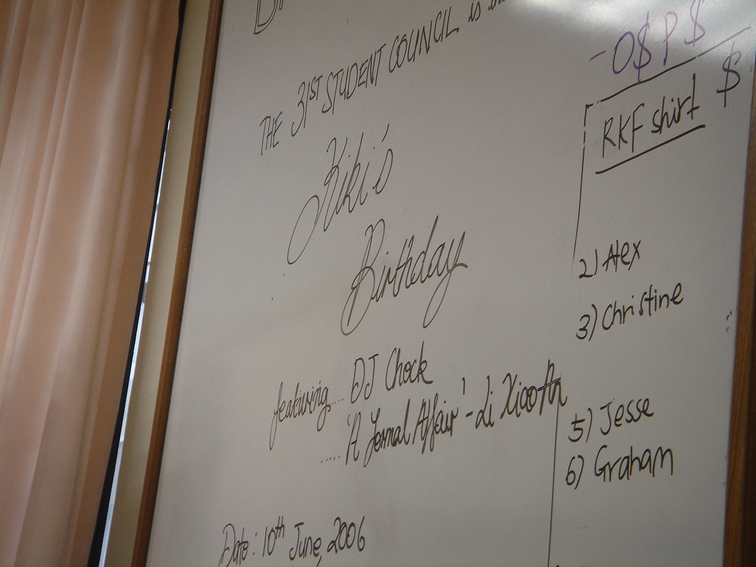 THE 31ST STUDENT COUNCIL is
Kiki's
Birthday
featuring... DJ Chock
..... 'A Formal Affair' - Li Xiao
Date: 10th June, 2006
-O$P$
RKF shirt $
2) Alex
3) Christine
5) Jesse
6) Graham